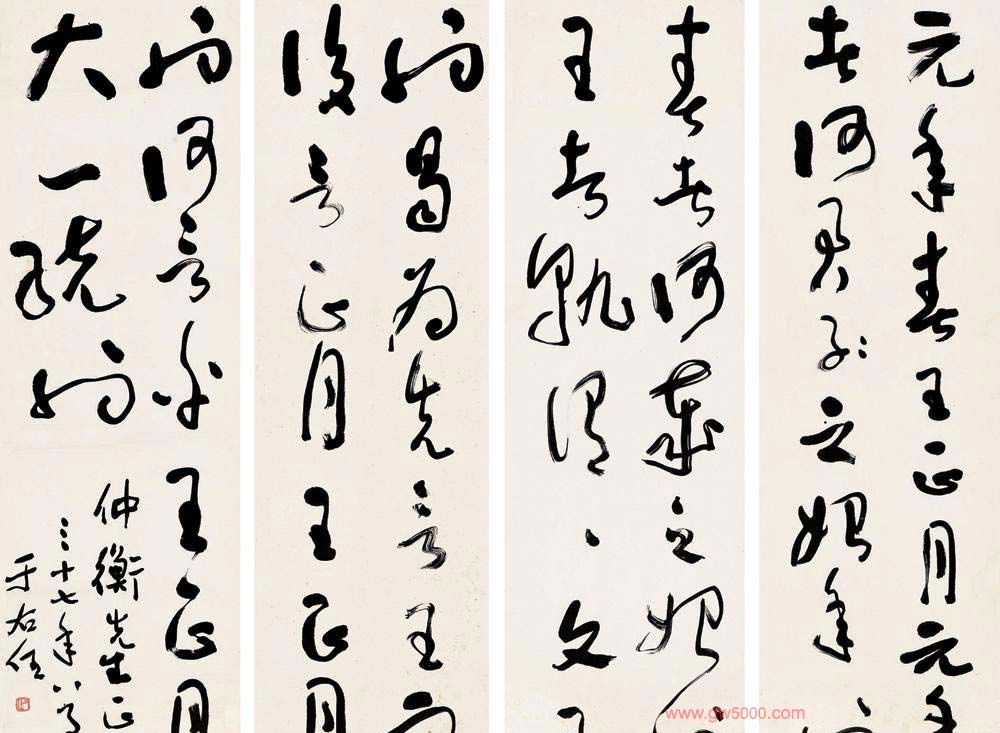 元年春王正月元年
者何君子之始年也
春者何歲之始也
王者孰謂謂文王
也曷為先言王而
後言正月王正月
也何言乎王正月
大一統也
仲衡先生正
三十七年八月
于右任
www.gw5000.com